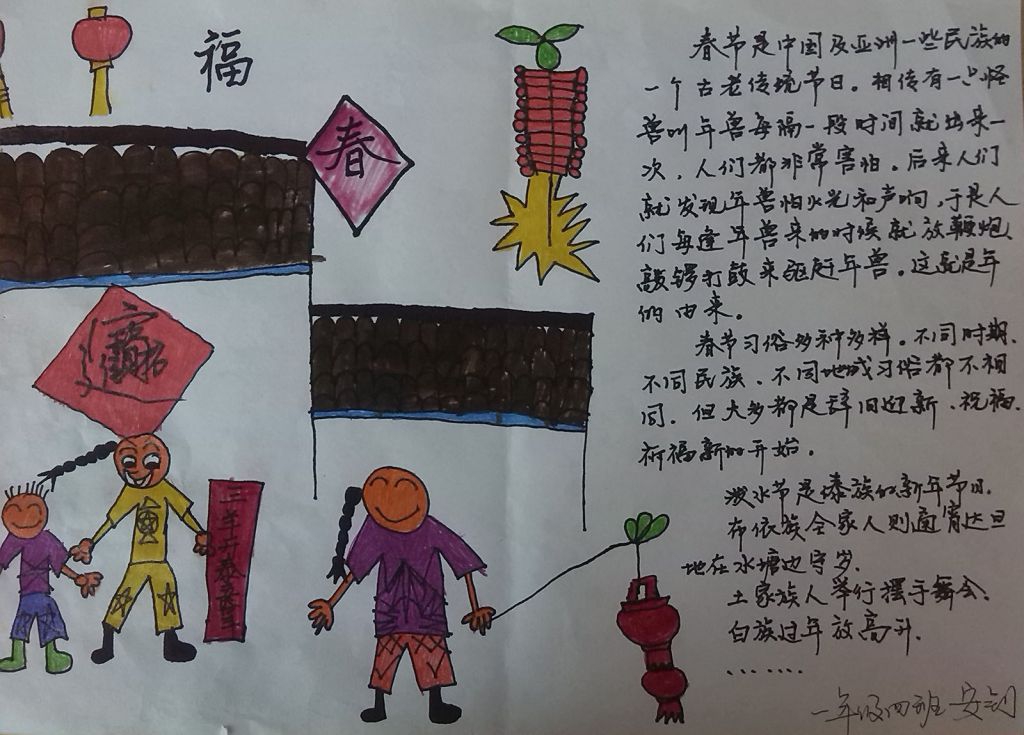 福
春
招财进宝
三羊开泰
春节是中国及亚洲一些民族的
一个古老传统节日。相传有一只怪
兽叫年兽每隔一段时间就出来一
次，人们都非常害怕。后来人们
就发现年兽怕火光和声响，于是人
们每逢年兽来的时候就放鞭炮、
敲锣打鼓来驱赶年兽。这就是年
的由来。
春节习俗多种多样。不同时期、
不同民族、不同地域习俗都不相
同．但大多都是辞旧迎新、祝福、
祈福新的开始．
泼水节是傣族的新年节日．
布依族全家人则通宵达旦
地在水塘边守岁．
土家族人举行摆手舞会．
白族过年放高升．
．．．．．．．
一年级四班 安